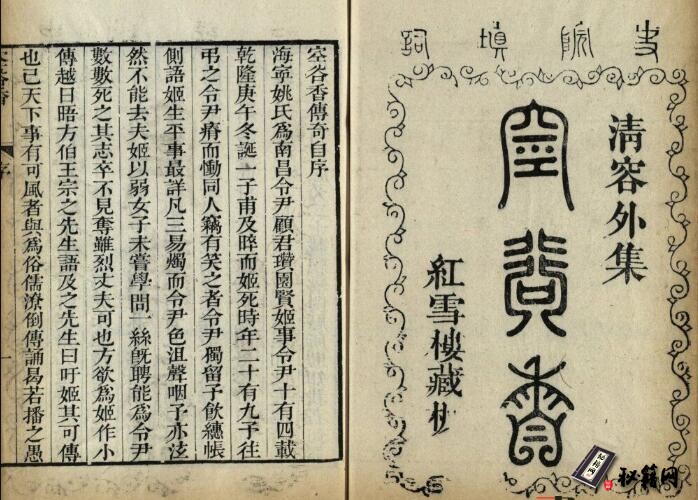 史院填詞
清容外集
空谷香
紅雪樓藏
空谷香傳奇自序
海寧姚氏爲南昌令尹顧君瓚園賢姬事令尹十有四載
乾隆庚午冬誕一子甫及晬而姬死時年二十有九予往
弔之令尹瘠而慟同人竊有笑之者令尹獨留予飲繐帳
側語姬生平事最詳凡三易燭而令尹色沮聲咽予亦泫
然不能去夫姬以弱女子未嘗學問一絲旣聘能爲令尹
數數死之其志卒不見奪雖烈丈夫可也方欲爲姬作小
傳越日晤方伯王宗之先生語及之先生曰吁姬其可傳
也已天下事有可風者與爲俗儒潦倒傳誦曷若播之愚
序
一
秘籍网